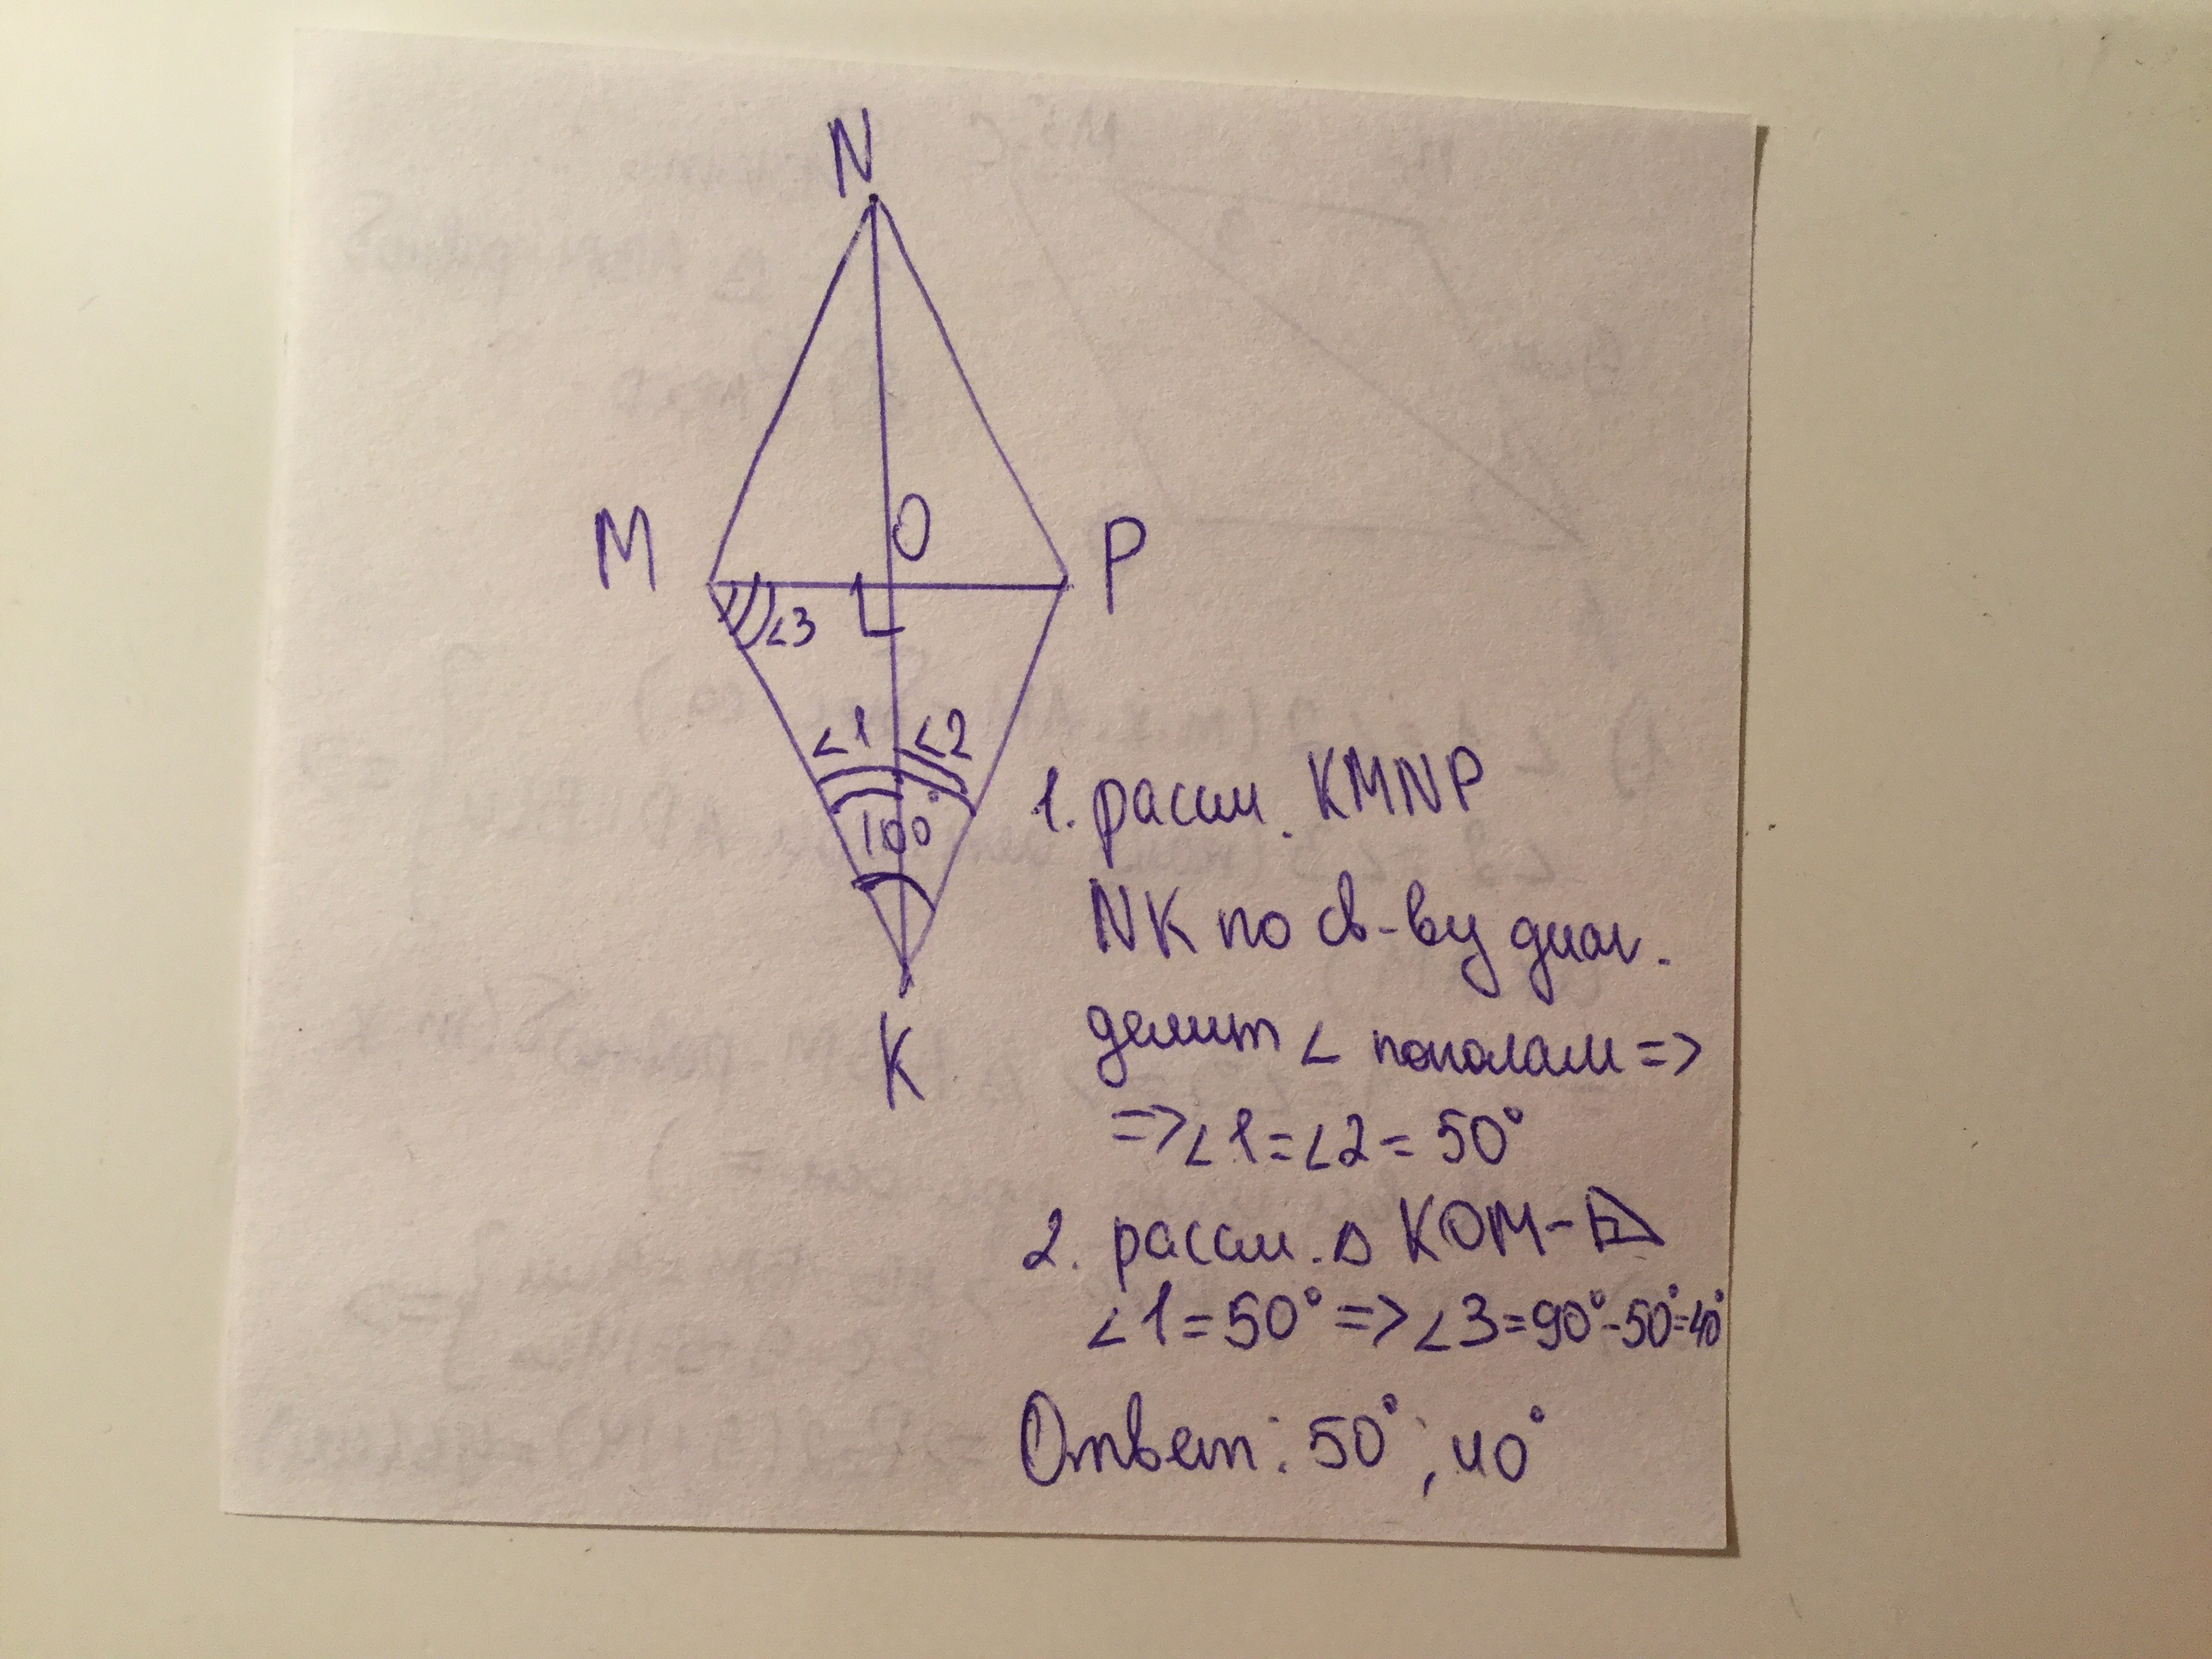 N
O
M
P
∠3
∠1 ∠2
100°
K
1. рассм. KMNP
NK по св-ву диаг.
делит ∠ пополам =>
=> ∠1 = ∠2 = 50°
2. рассм. △ KOM -
∠1 = 50° => ∠3 = 90° - 50° = 40°
Ответ: 50°; 40°